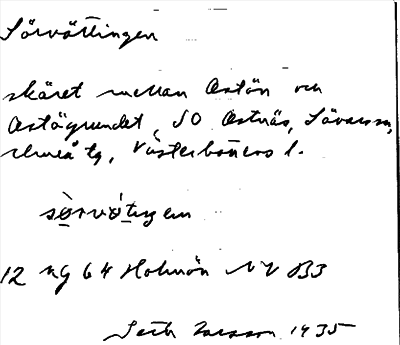 Sörvättingen
skäret mellan Ostön och
Ostögrundet, SO Ostnäs, Sävars sn,
Umeå tg, Västerbottens l.
12 NG 64 Holmön NV B3
Seth Larsson 1935